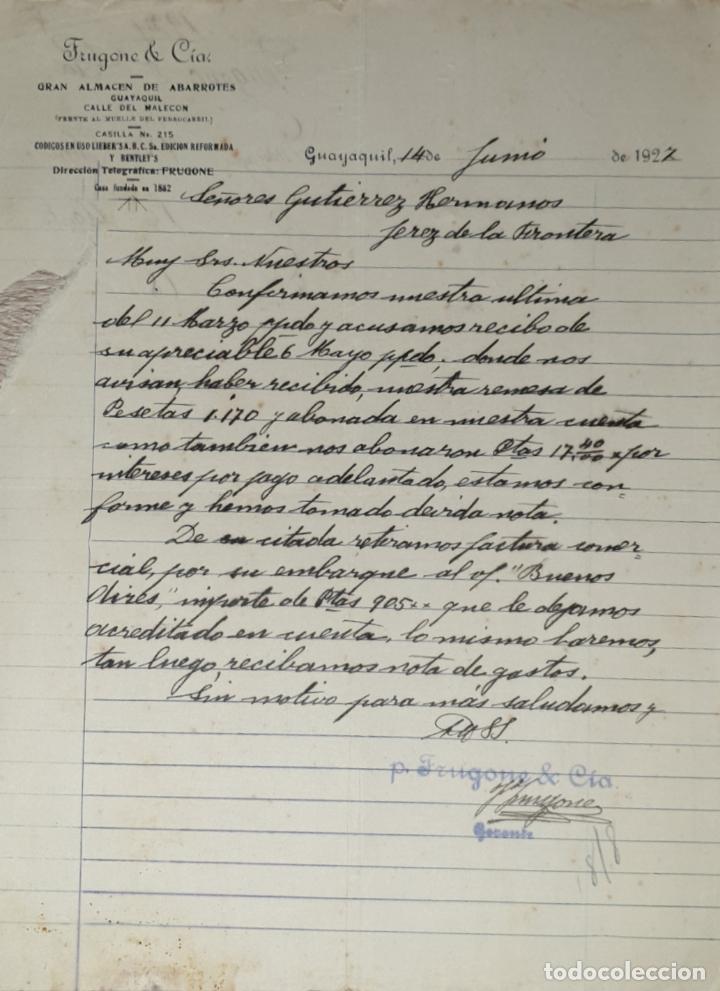 Frugone & Cía.
GRAN ALMACEN DE ABARROTES
GUAYAQUIL
CALLE DEL MALECON
(FRENTE AL MUELLE DEL FERROCARRIL)
CASILLA No. 215
CODIGOS EN USO LIEBER'S A. B. C. 5a. EDICION REFORMADA
Y BENTLEY'S
Dirección Telegráfica: FRUGONE
Casa fundada en 1882
Guayaquil, 14 de Junio de 1922
Señores Gutiérrez Hermanos
Jerez de la Frontera
Muy Srs. Nuestros
Confirmamos nuestra ultima
del 11 Marzo ppdo y acusamos recibo de
su apreciable 6 Mayo ppdo. donde nos
avisan, haber recibido, nuestra remesa de
Pesetas 1.170 y abonada en nuestra cuenta
como tambien nos abonaron Ptas 17 40/00 por
intereses por pago adelantado, estamos con-
forme y hemos tomado devida nota.
De su citada retiramos factura comer-
cial, por su embarque al vf. "Buenos
Aires," importe de Ptas 905.. que le dejamos
acreditado en cuenta, lo mismo haremos,
tan luego, recibamos nota de gastos.
Sin motivo para más saludamos y
p. Frugone & Cía
Frugone
Gerente
todocoleccion
todocoleccion.net